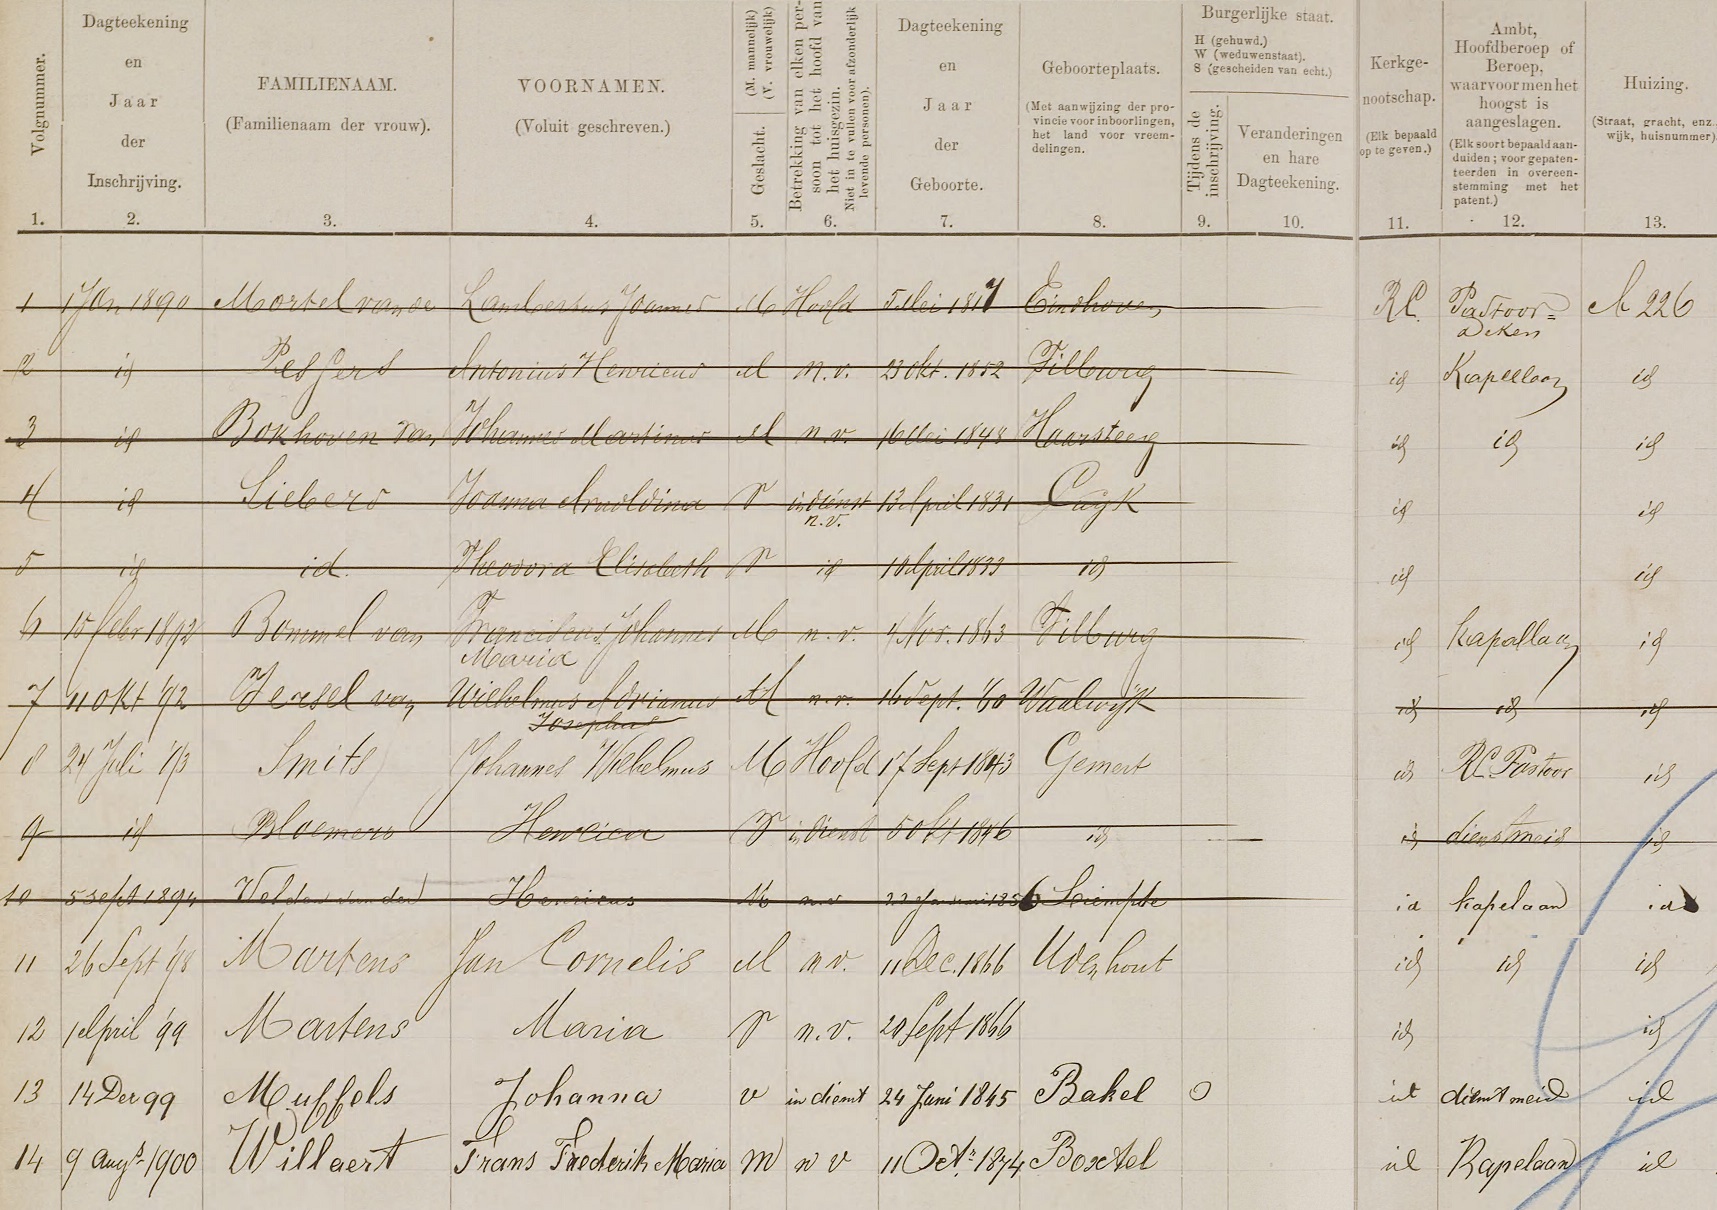 Volgnummer.
Dagteekening
en
Jaar
der
Inschrijving.
FAMILIENAAM.
(Familienaam der vrouw).
VOORNAMEN.
(Voluit geschreven.)
Geslacht.
(M. mannelijk)
(V. vrouwelijk)
Betrekking van elken per-
soon tot het hoofd van
het huisgezin.
Niet in te vullen voor afzonderlijk
levende personen).
Dagteekening
en
Jaar
der
Geboorte.
Geboorteplaats.
(Met aanwijzing der pro-
vincie voor inboorlingen,
het land voor vreem-
delingen.
Burgerlijke staat.
H (gehuwd.)
W (weduwenstaat).
S (gescheiden van echt.)
Tijdens de
inschrijving.
Veranderingen
en hare
Dagteekening.
Kerkge-
nootschap.
(Elk bepaald
op te geven.)
Ambt,
Hoofdberoep of
Beroep,
waarvoor men het
hoogst is
aangeslagen.
(Elk soort bepaald aan-
duiden; voor gepaten-
teerden in overeen-
stemming met het
patent.)
Huizing.
(Straat, gracht, enz.
wijk, huisnummer).
1. 2. 3. 4. 5. 6. 7. 8. 9. 10. 11. 12. 13.
1 1 Jan 1890 Mortel van de Lambertus Joannes M Hoofd 5 Mei 1817 Eindhoven R C. Pastoor=
Deken
A 226
2 id Pessers Antonius Henricus M n.v. 23 Okt. 1852 Tilburg id Kapellaan id
3 id Bokhoven van Johannes Martinus M n.v. 16 Mei 1848 Haarsteeg id id id
4 id Siebers Joanna Arnoldina V in dienst 13 April 1831 Cuijk id id
n.v.
5 id id. Theodora Elisabeth V id 10 April 1833 id id id
6 15 febr 1892 Bommel van Franciscus Johannes M n.v. 4 Nov. 1863 Tilburg id kapallaan id
Maria
7 11 Okt '92 Iersel van Wilhelmus Adrianus M n.v. 16 Sept. '60 Waalwijk id id id
Josephus
8 24 Juli '93 Smits Johannes Wilhelmus M Hoofd 17 Sept 1843 Gemert id R.C. Pastoor id
9 id Bloemers Henrica V in dienst 5 Okt 1846 id id dienstmeid id
10 5 Sept 1894 Velden van den Henricus M n.v. 1856 Liempde id kapelaan id
11 26 Sept '98 Martens Jan Cornelis M n v. 11 Dec. 1866 Udenhout id id id
12 1 April '99 Martens Maria V n.v. 20 Sept 1866 id id
13 14 Dec 99 Muffels Johanna v in dienst 24 Juni 1845 Bakel O id dienstmeid id
14 9 Augs 1900 Willaert Frans Frederik Maria M n v 11 Octr. 1874 Boxtel id Kapelaan id